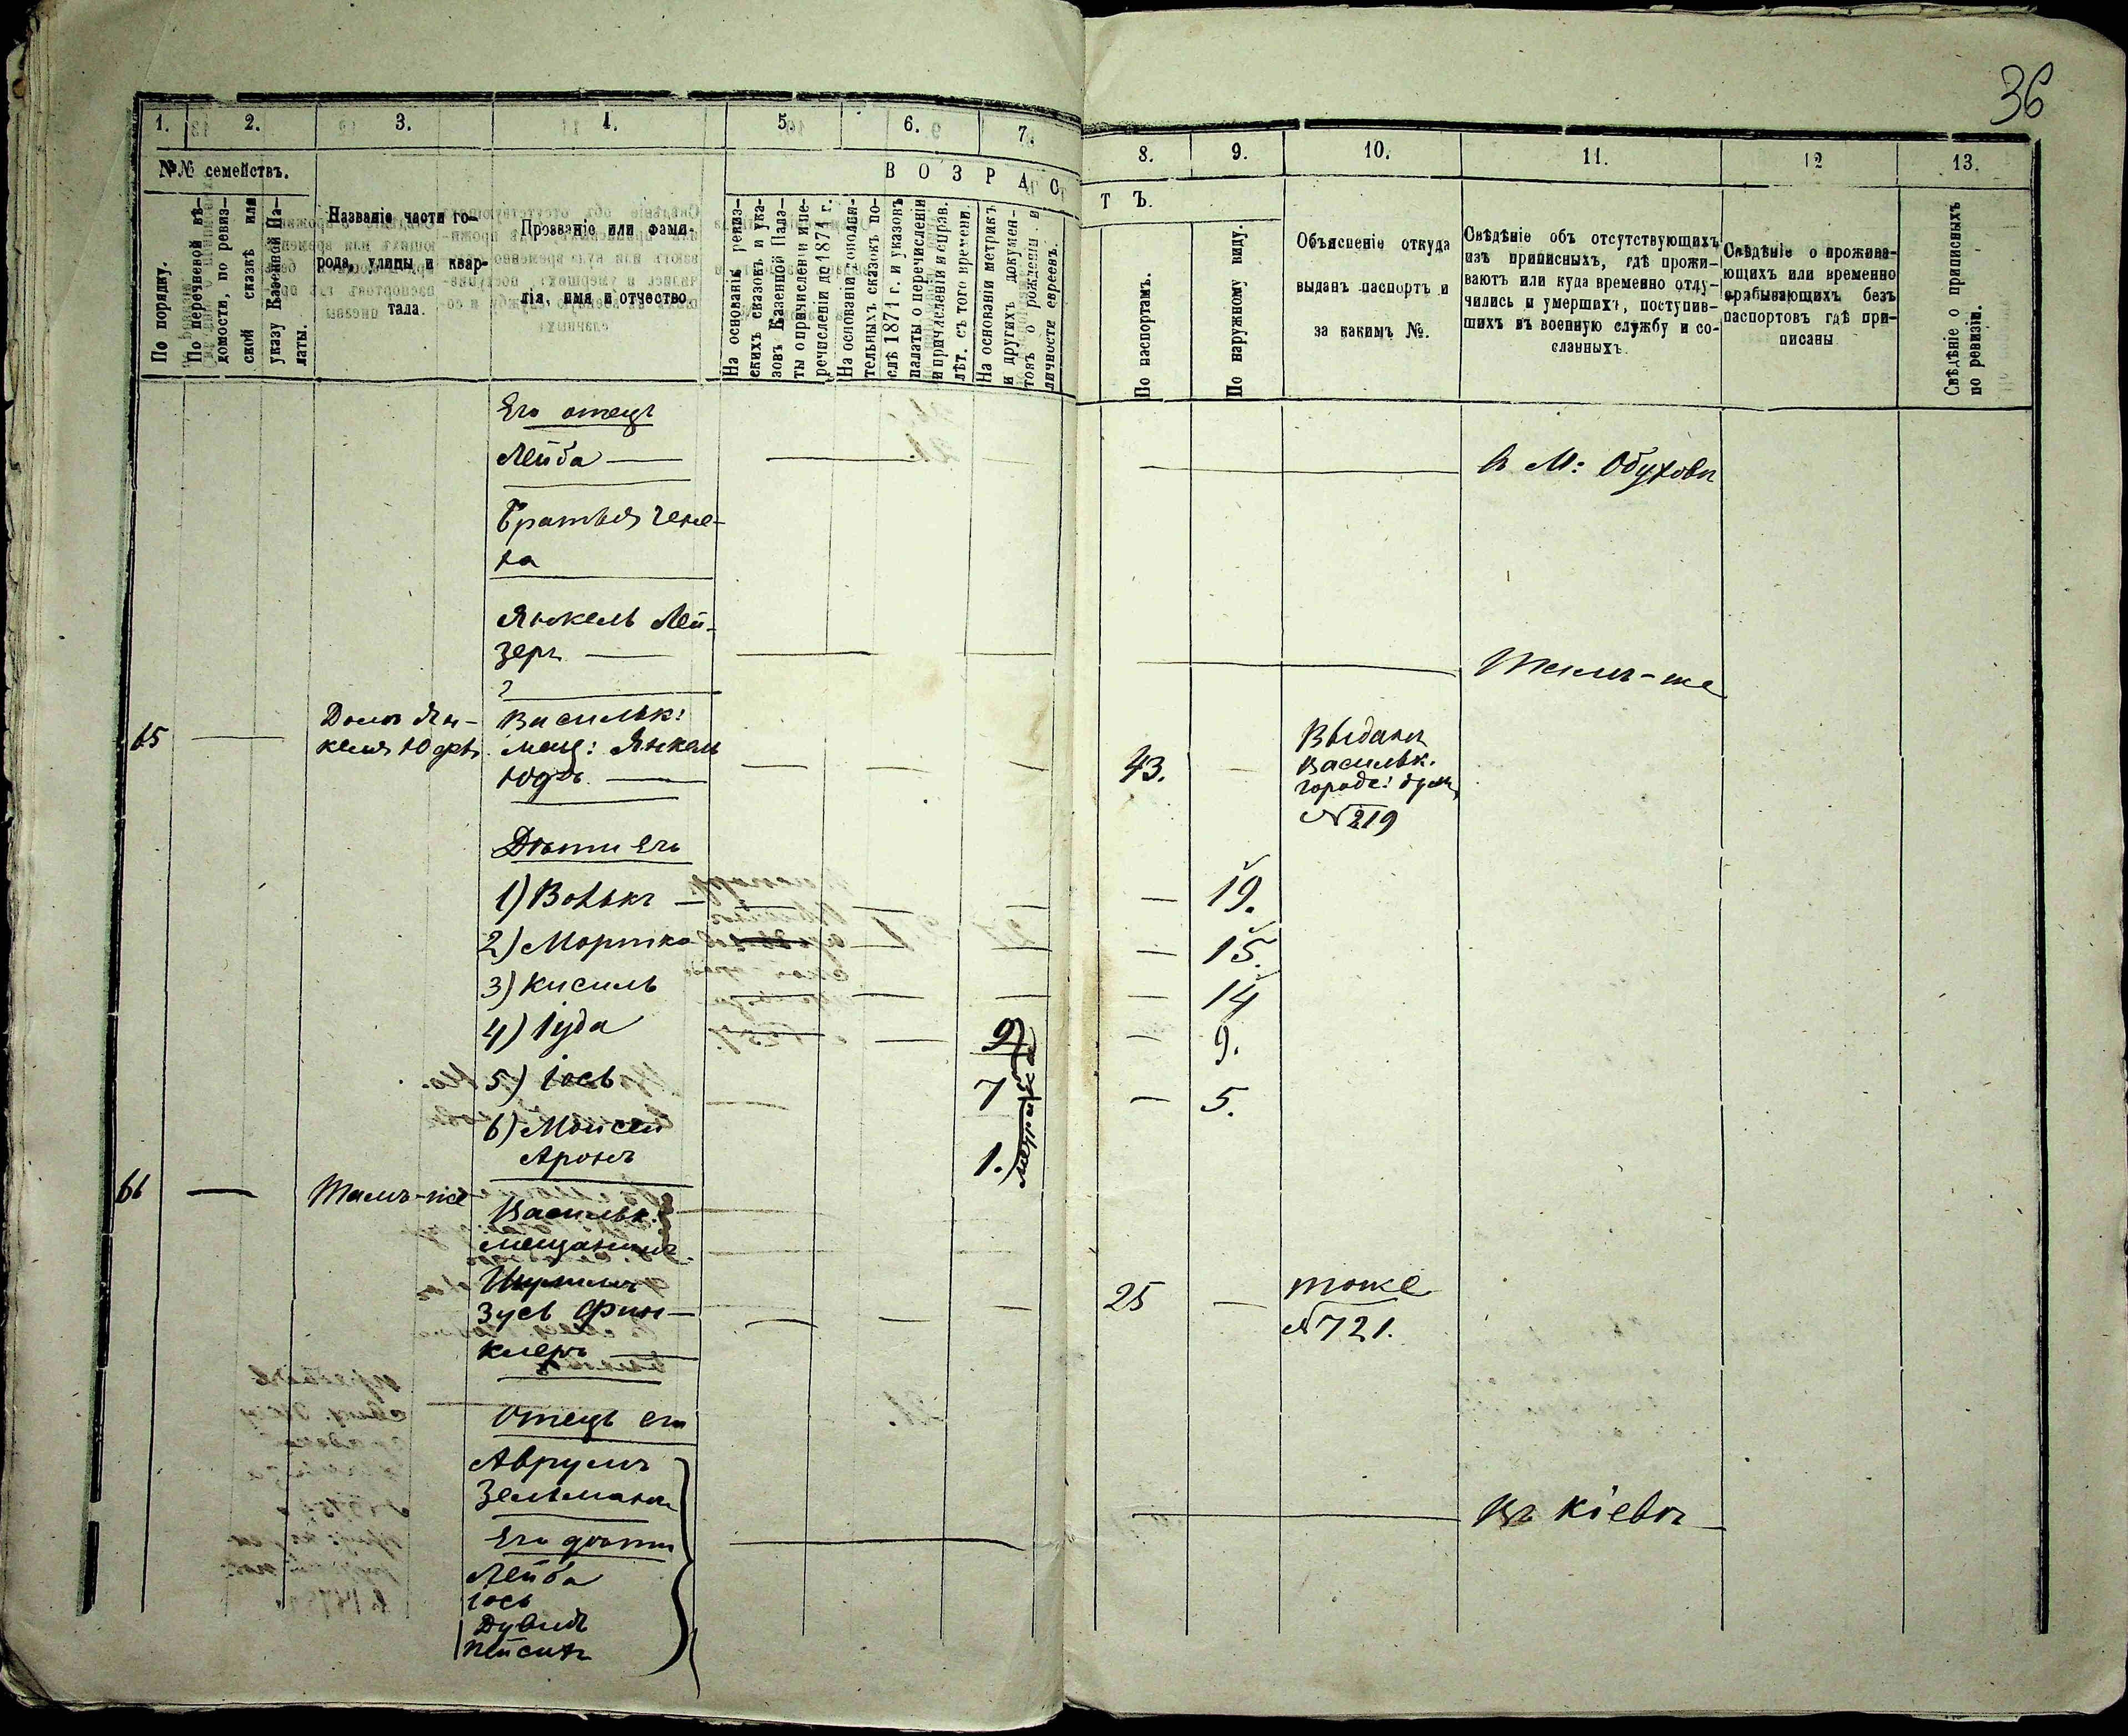 36
1. 2. 3. 4. 5. 6. 7. 8. 9. 10. 11. 12 13.
№№ семействъ.
По порядку.
По перечневой вѣ-
домости, по ревиз-
ской сказкѣ или
указу Казенной Па-
латы.
Названіе части го-
рода, улицы и квар-
тала.
Прозваніе или фами-
лія, имя и отчество
ВОЗРАСТЪ.
На основаніи ревиз-
скихъ сказокъ и ука-
зовъ Казенной Пала-
ты о причисленіи и пе-
речисленіи до 1871 г.
На основаніи дополни-
тельныхъ сказокъ по-
слѣ 1871 г. и указовъ
палаты о перечисленіи
и причисленіи и справ.
лѣт. съ того времени.
На основаніи метрикъ
и другихъ докумен-
товъ о рожденіи и
личности евреевъ.
По паспортамъ.
По наружному виду.
Объясненіе откуда
выданъ паспортъ и
за какимъ №.
Свѣдѣніе объ отсутствующихъ
изъ приписныхъ, гдѣ прожи-
ваютъ или куда временно отлу-
чились и умершихъ, поступив-
шихъ въ военную службу и со-
сланныхъ.
Свѣдѣніе о прожива-
ющихъ или временно
пребывающихъ безъ
паспортовъ гдѣ при-
писаны
Свѣдѣніе о приписныхъ
по ревизіи.
Его отецъ
Лейба —
в М: Обуховѣ
Братья
Янкель Лей-
зеръ —
Тамъ-же
65 — Домъ Ян-
келя
Васильк:
мещ: Янкель
43. —
Выданъ
Васильк.
городс: думы
№ 219
Дѣти его
1) Волькъ — 19.
2) Мортко — 15.
3) Кисиль — 14
4) Іуда — 9 — 9.
5) Іось — 7 — 5.
6) Мойсей
Аронъ 1.
66 — Тамъ-же
Васильк.
мещанинъ
Зусь Фин-
клеръ —
25 —
тоже
№ 721.
Отецъ его
Аврумъ
Зельманъ
Его дѣти
Лейба
Іось
Дувидъ
въ Кіевѣ